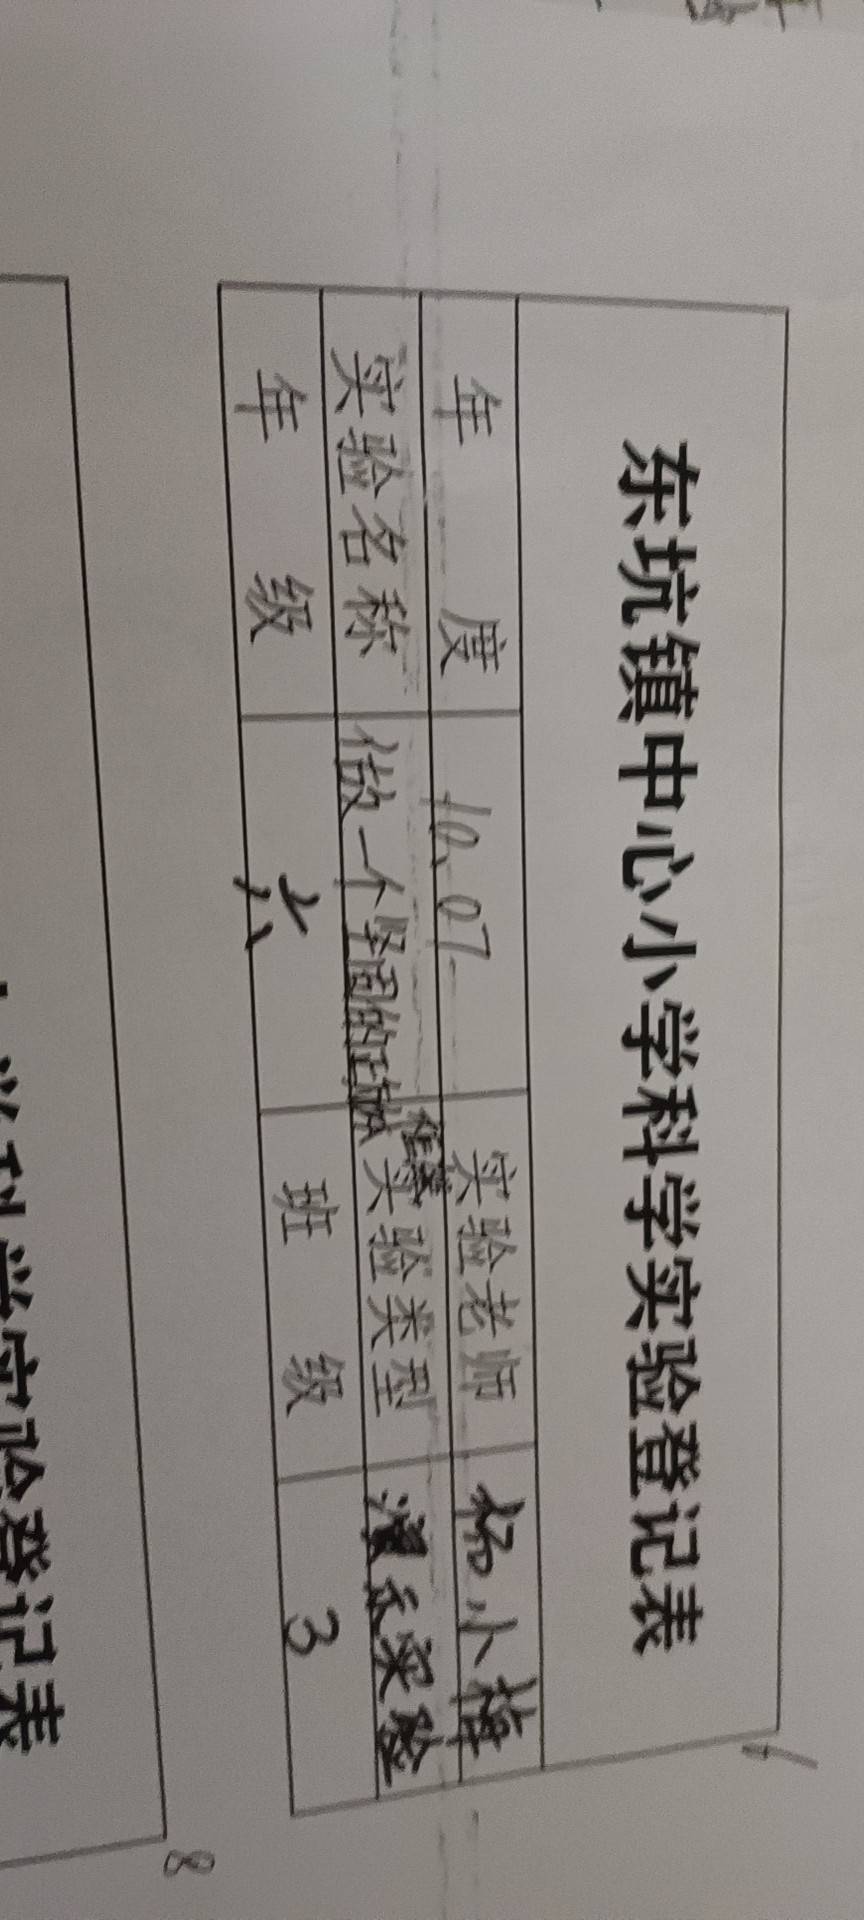 东坑镇中心小学科学实验登记表
1
年 度 10、07 实验老师 杨小樟
实验名称 做一个坚固的 框架 实验类型 演示实验
年 级 六 班 级 3
8
小学科学实验登记表